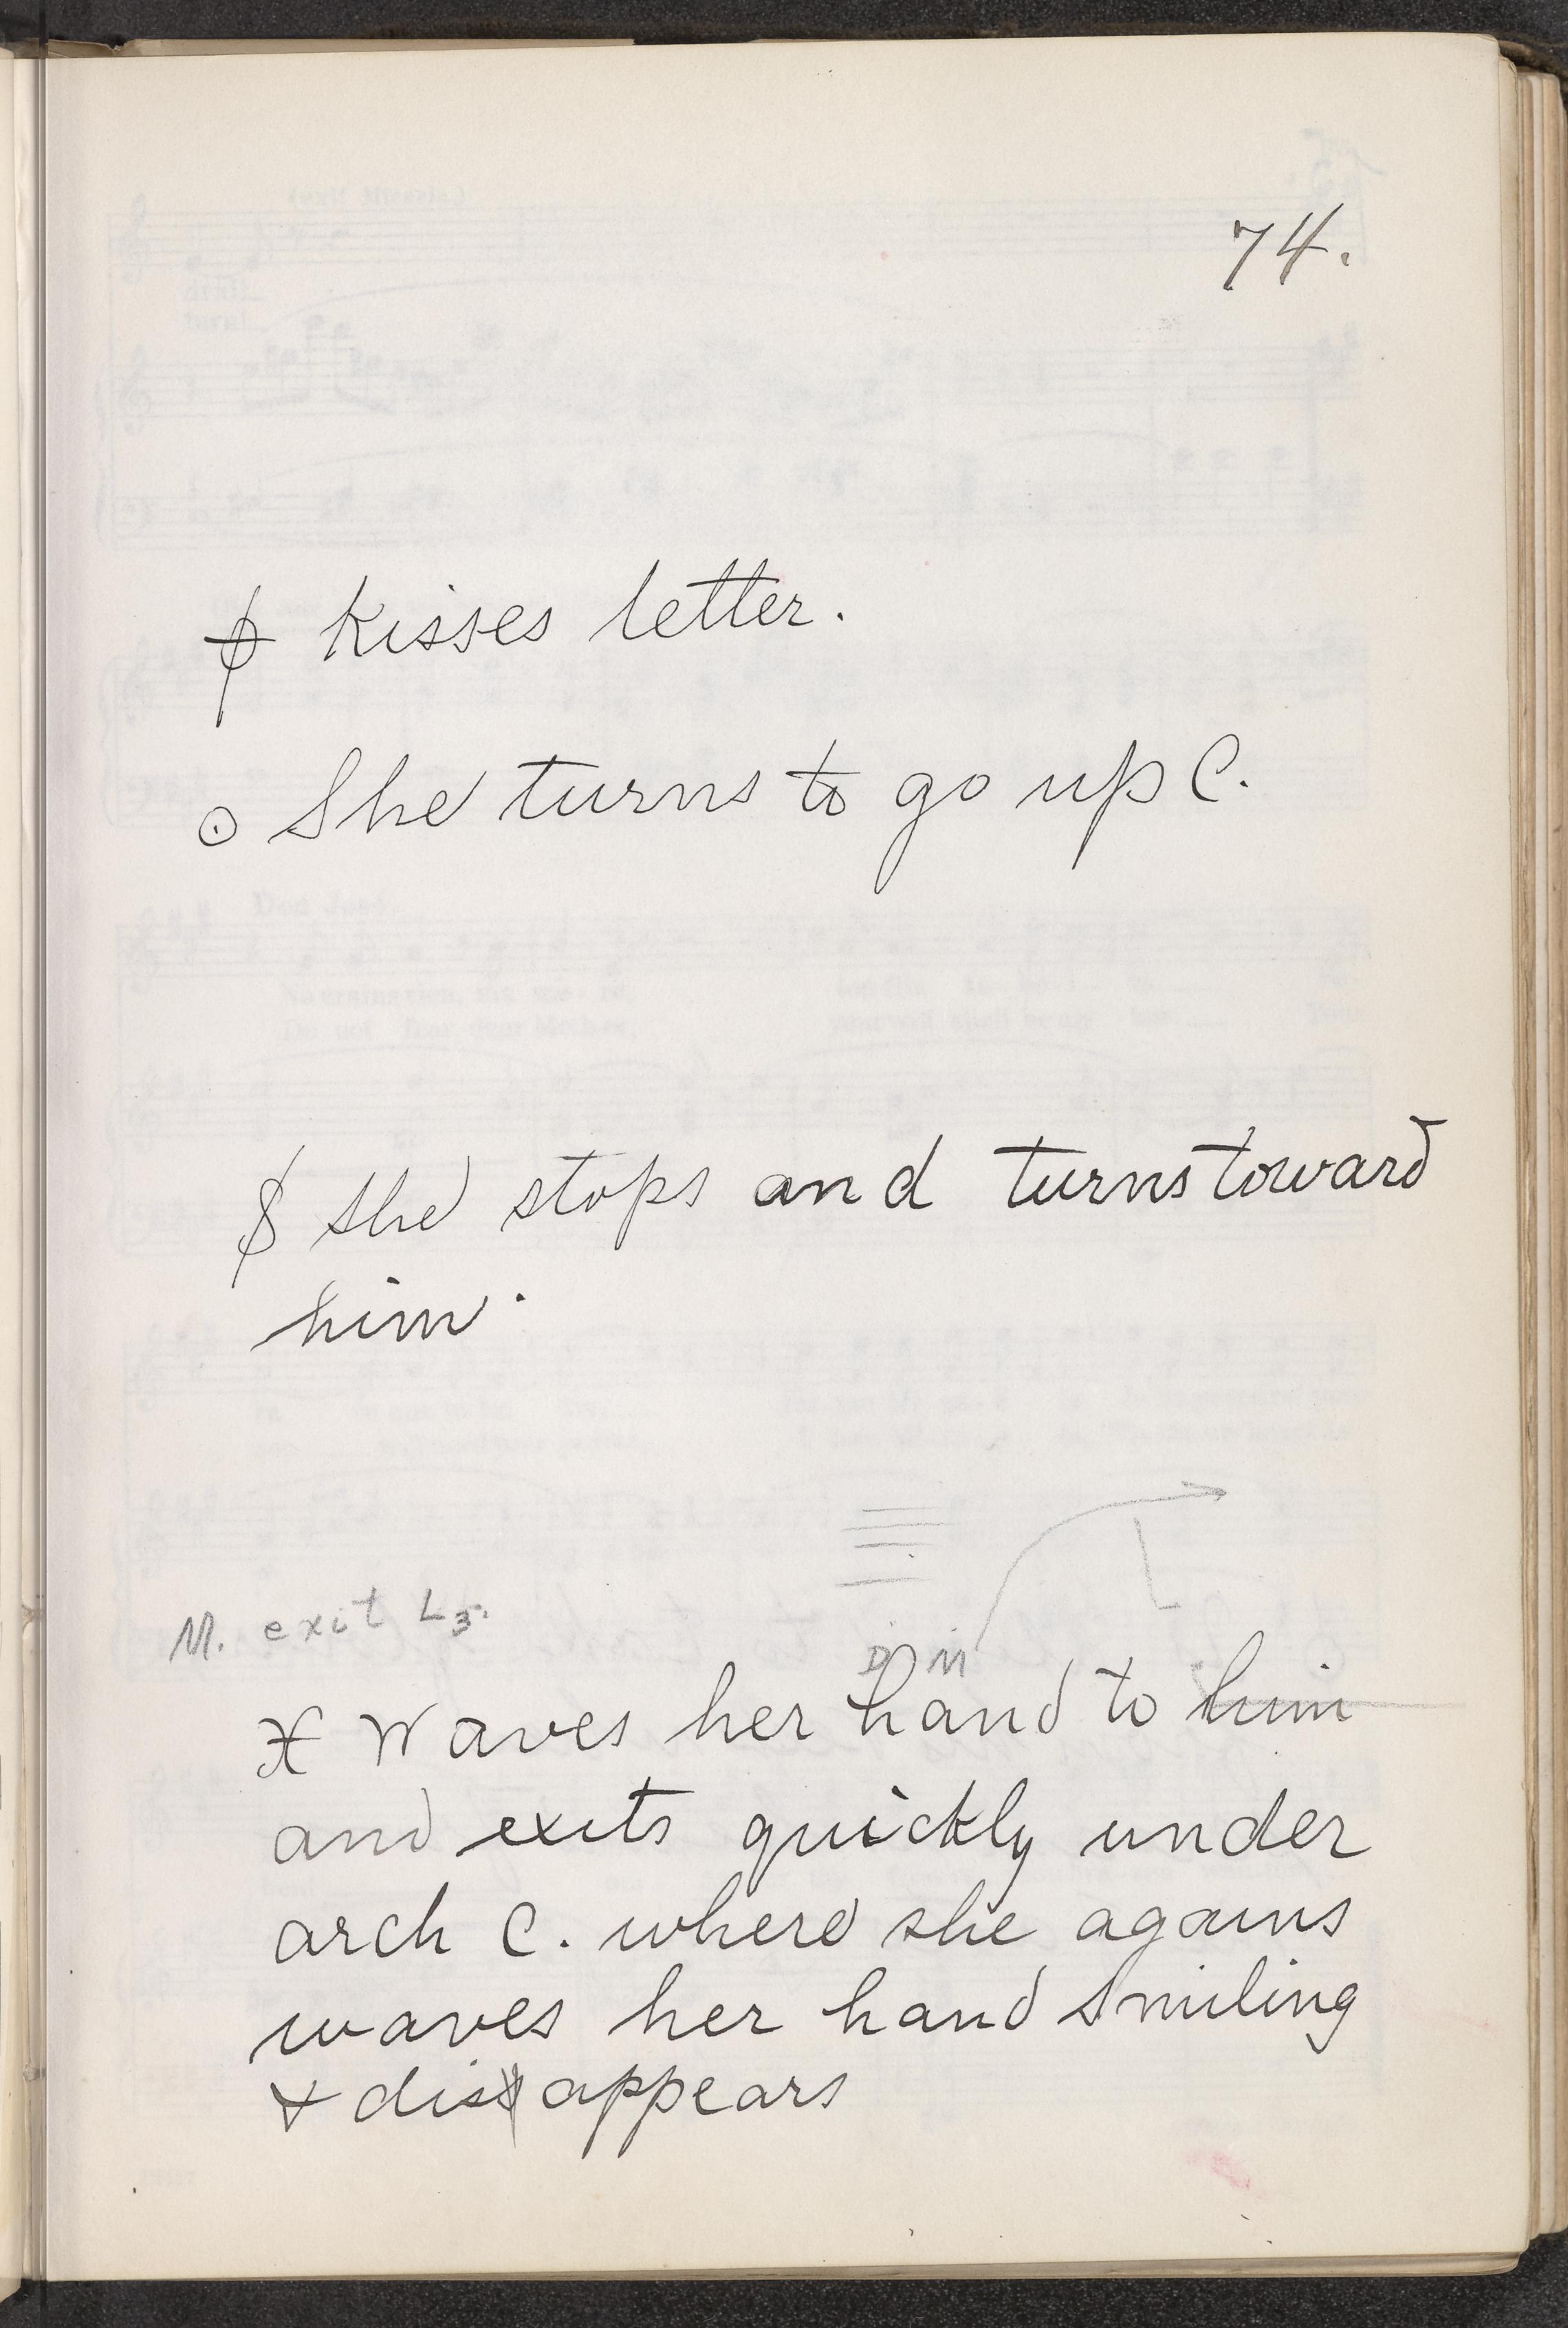 74.
Kisses letter.
⊙ She turns to go up C.
she stops and turns toward
him.
M. exit L3.
D M
Waves her hand to him
and exits quickly under
arch C. where she agains
waves her hand smiling
& disappears